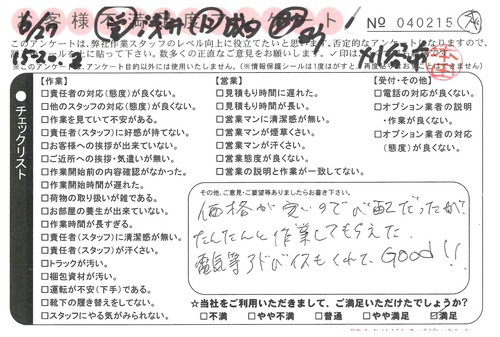 お客様不満度アンケート
No 040215
このアンケートは、弊社作業スタッフのレベル向上に役立てたいと思います。否定的なアンケートとなりますので、
チェックリスト
【作業】
□責任者の対応(態度)が良くない。
□他のスタッフの対応(態度)が良くない。
□作業を見ていて不安がある。
□責任者(スタッフ)に好感が持てない。
□お客様への挨拶が出来ていない。
□ご近所への挨拶・気遣いが無い。
□作業開始前の内容確認がなかった。
□作業開始時間が遅れた。
□荷物の取り扱いが雑である。
□お部屋の養生が出来ていない。
□作業時間が長すぎる。
□責任者(スタッフ)に清潔感が無い。
□責任者(スタッフ)が汗くさい。
□トラックが汚い。
□梱包資材が汚い。
□運転が不安(下手)である。
□靴下の履き替えをしてない。
□スタッフにやる気がみられない。
【営業】
□見積もり時間に遅れた。
□見積もり時間が長い。
□営業マンに清潔感が無い。
□営業マンが煙草くさい。
□営業マンが汗くさい。
□営業態度が良くない。
□営業の説明と作業が一致してない。
【受付・その他】
□電話の対応が良くない。
□オプション業者の説明
・作業が良くない。
□オプション業者の対応
(態度)が良くない。
その他、ご意見・ご要望等ありましたらお書き下さい。
価格が安いので心配だったが、
たんたんと作業してもらえた。
電気等アドバイスもくれて、Good!!
☆当社をご利用いただきまして、ご満足いただけたでしょうか?
□不満 □やや不満 □普通 □やや満足 ☑満足